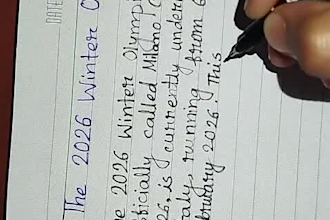 DATE
The 2026 Winter O
e 2026 Winter Olympi
ficially called Milano C
26, is currently under
aly, running from 6
bruary 2026. This